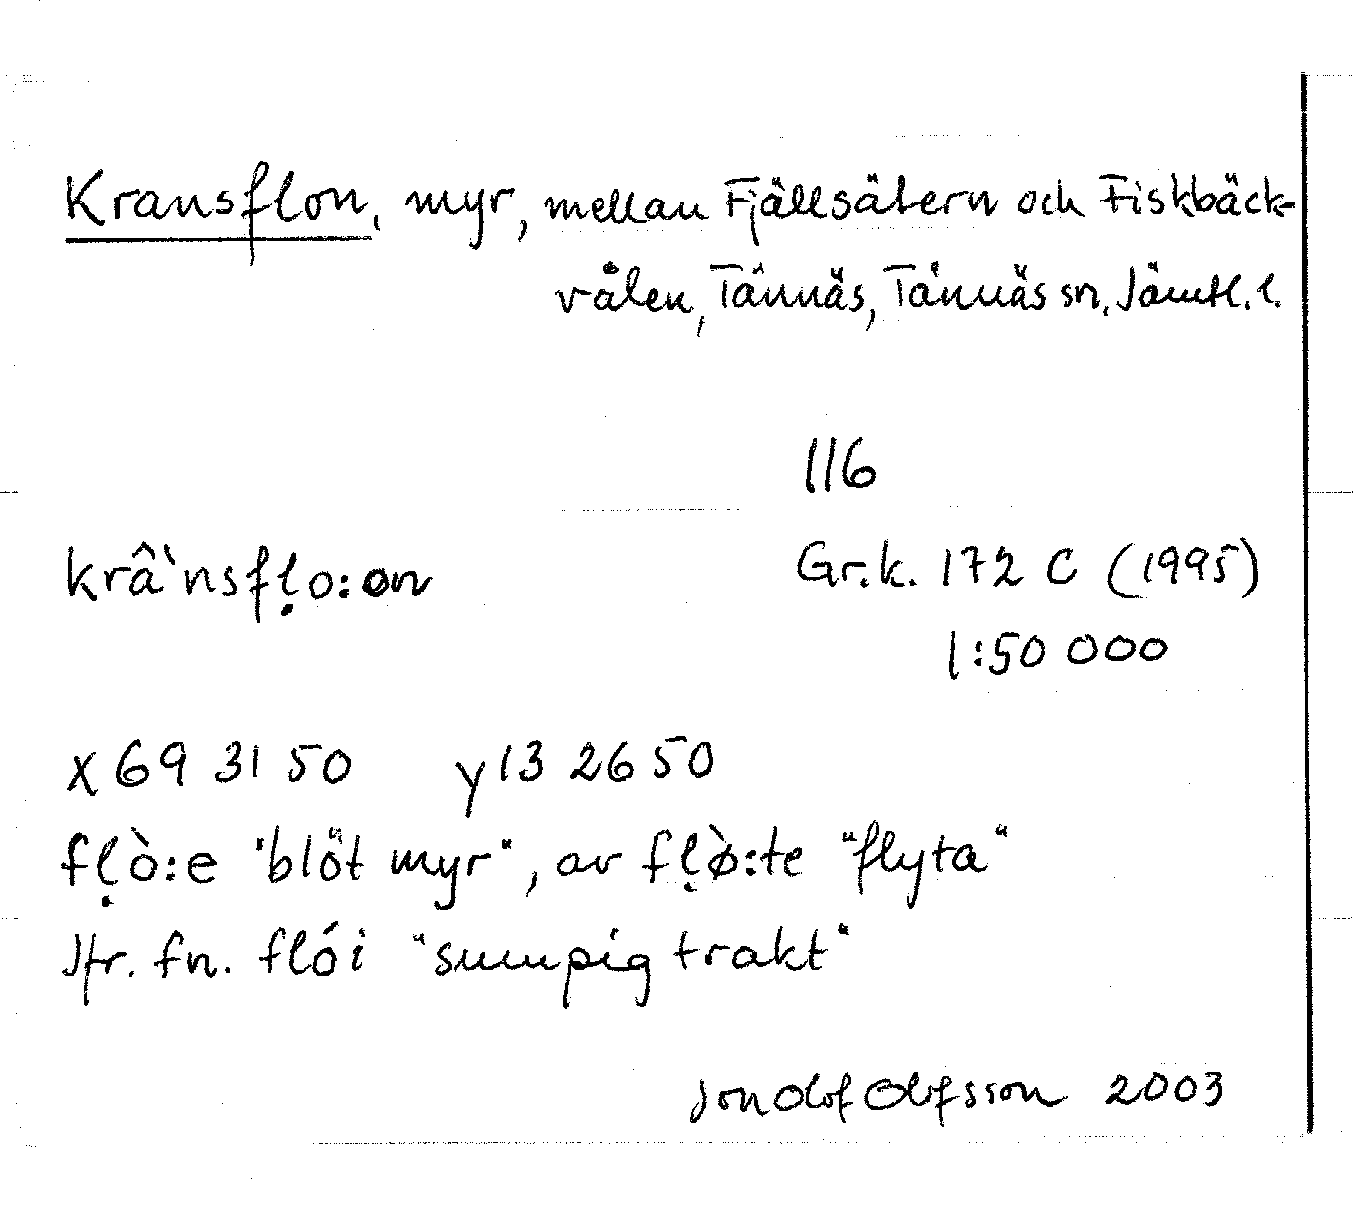 Kransflon, myr, mellan Fjällsätern och Fiskbäck-
vålen, Tännäs, Tännäs sn, Jämtl. l.
116
krâ`nsfḷo:on
Gr.k. 172 C (1995)
1:50 000
x 69 31 50 y 13 26 50
fḷò:e "blöt myr", av fḷø̀:te "flyta"
Jfr. fn. flói "sumpig trakt"
Jon Olof Olofsson 2003